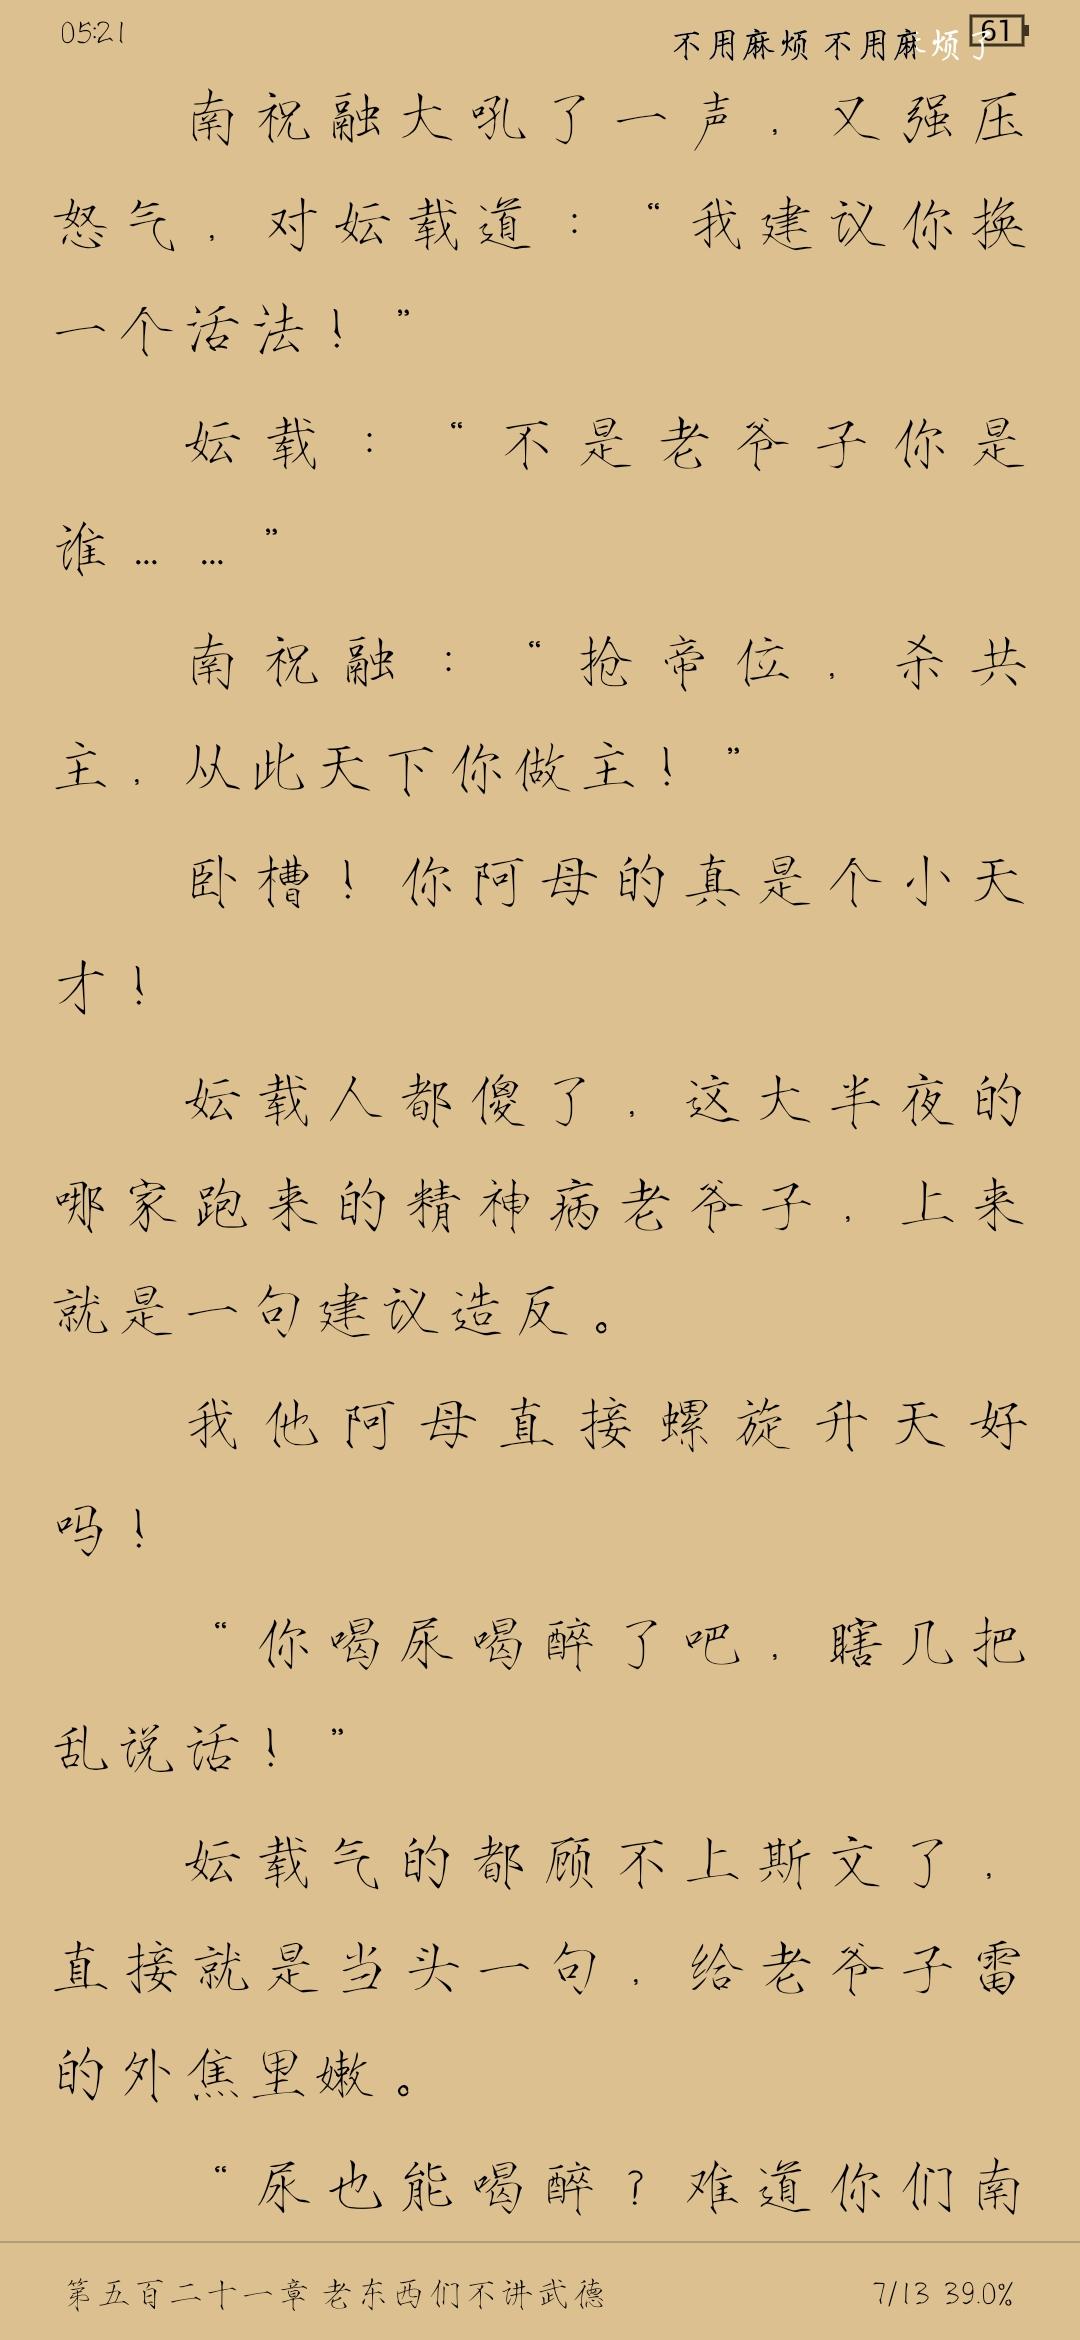 05:21
不用麻烦 不用麻烦了
61
南祝融大吼了一声，又强压
怒气，对妘载道：“我建议你换
一个活法！”
妘载：“不是老爷子你是
谁……”
南祝融：“抢帝位，杀共
主，从此天下你做主！”
卧槽！你阿母的真是个小天
才！
妘载人都傻了，这大半夜的
哪家跑来的精神病老爷子，上来
就是一句建议造反。
我他阿母直接螺旋升天好
吗！
“你喝尿喝醉了吧，瞎几把
乱说话！”
妘载气的都顾不上斯文了，
直接就是当头一句，给老爷子雷
的外焦里嫩。
“尿也能喝醉？难道你们南
第五百二十一章 老东西们不讲武德
7/13 39.0%